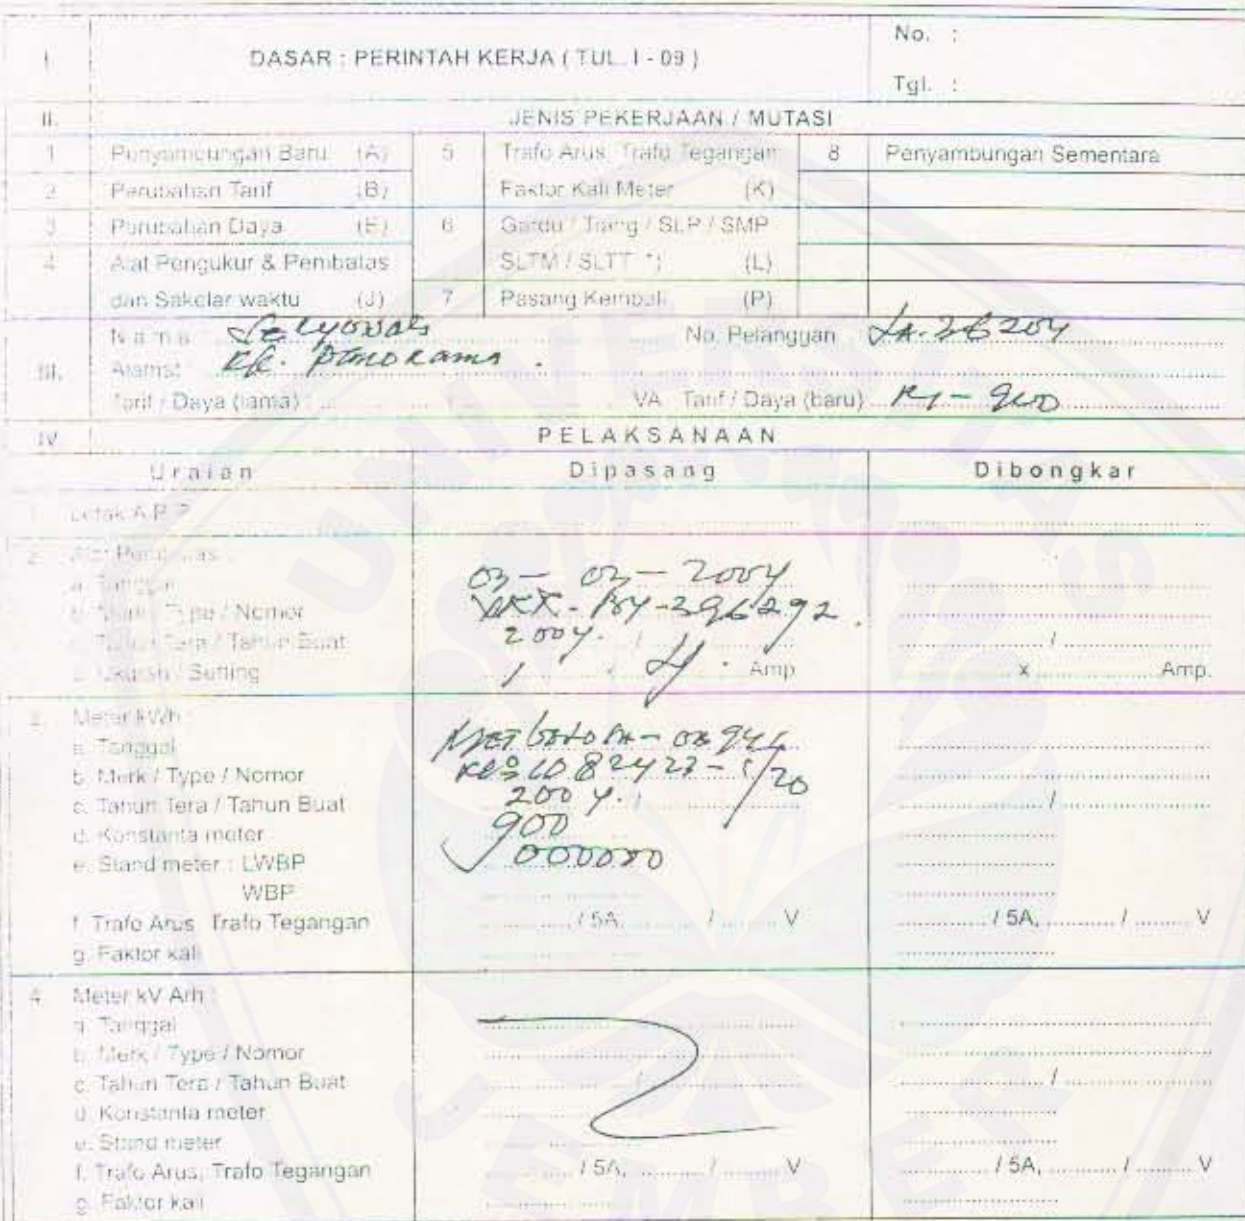 No. :
I. DASAR : PERINTAH KERJA ( TUL. I - 09 )
Tgl. :
II. JENIS PEKERJAAN / MUTASI
1 Penyambungan Baru (A) 5 Trafo Arus, Trafo Tegangan 8 Penyambungan Sementara
2 Perubahan Tarif (B) Faktor Kali Meter (K)
3 Perubahan Daya (E) 6 Gardu / Tiang / SLP / SMP
4 Alat Pengukur & Pembatas SLTM / SLTT *) (L)
dan Sakelar waktu (J) 7 Pasang Kembali (P)
Nama No. Pelanggan
III. Alamat
Tarif / Daya (lama) : / VA Tarif / Daya (baru) - 900
IV PELAKSANAAN
Uraian Dipasang Dibongkar
1. Letak A.P.P
2. Alat Pembatas :
a. Tanggal 03 - 03 - 2004
b. Merk / Type / Nomor
c. Tahun Tera / Tahun Buat 2004. / /
d. Ukuran / Setting 1 x 4 . Amp x Amp.
3. Meter kWh :
a. Tanggal
b. Merk / Type / Nomor
c. Tahun Tera / Tahun Buat 2004. / /
d. Konstanta meter 900
e. Stand meter : LWBP 000000
WBP
f. Trafo Arus, Trafo Tegangan / 5A, / V / 5A, / V
g. Faktor kali
4. Meter kV Arh :
a. Tanggal
b. Merk / Type / Nomor
c. Tahun Tera / Tahun Buat / /
d. Konstanta meter
e. Stand meter
f. Trafo Arus, Trafo Tegangan / 5A, / V / 5A, / V
g. Faktor kali